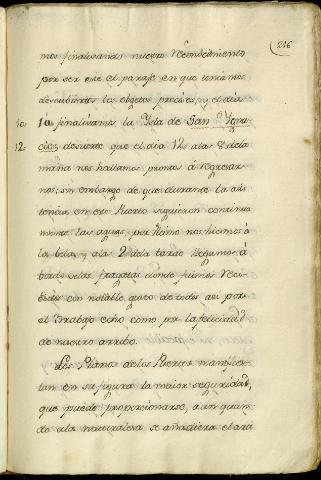 216
mos finalisando nuestro
por ser este el paraje en que teniamos
descubiertos los objetos precisos, y el dia
10 10 finalisamos la Ysla de San Ygna
12 cio, de suerte que el dia 12, a las 8 de la
mañana nos hallamos prontos á regresar
nos: sin embargo de que durante la asis
tencia en este Puerto siguieron continua
mente las aguas, por ultimo nos hicimos á
la bela, y a las 2 de la tarde llegamos á
bordo de las fragatas donde fuimos reci
bidos con notable gusto de todos asi por
el trabajo echo como por la felicidad
de nuestro arribo.
Los Planos de los Puertos manifies
tan en su figura la maior seguridad,
que puede proporcionarse, a un quan
do a la naturalesa se añadiera el arte